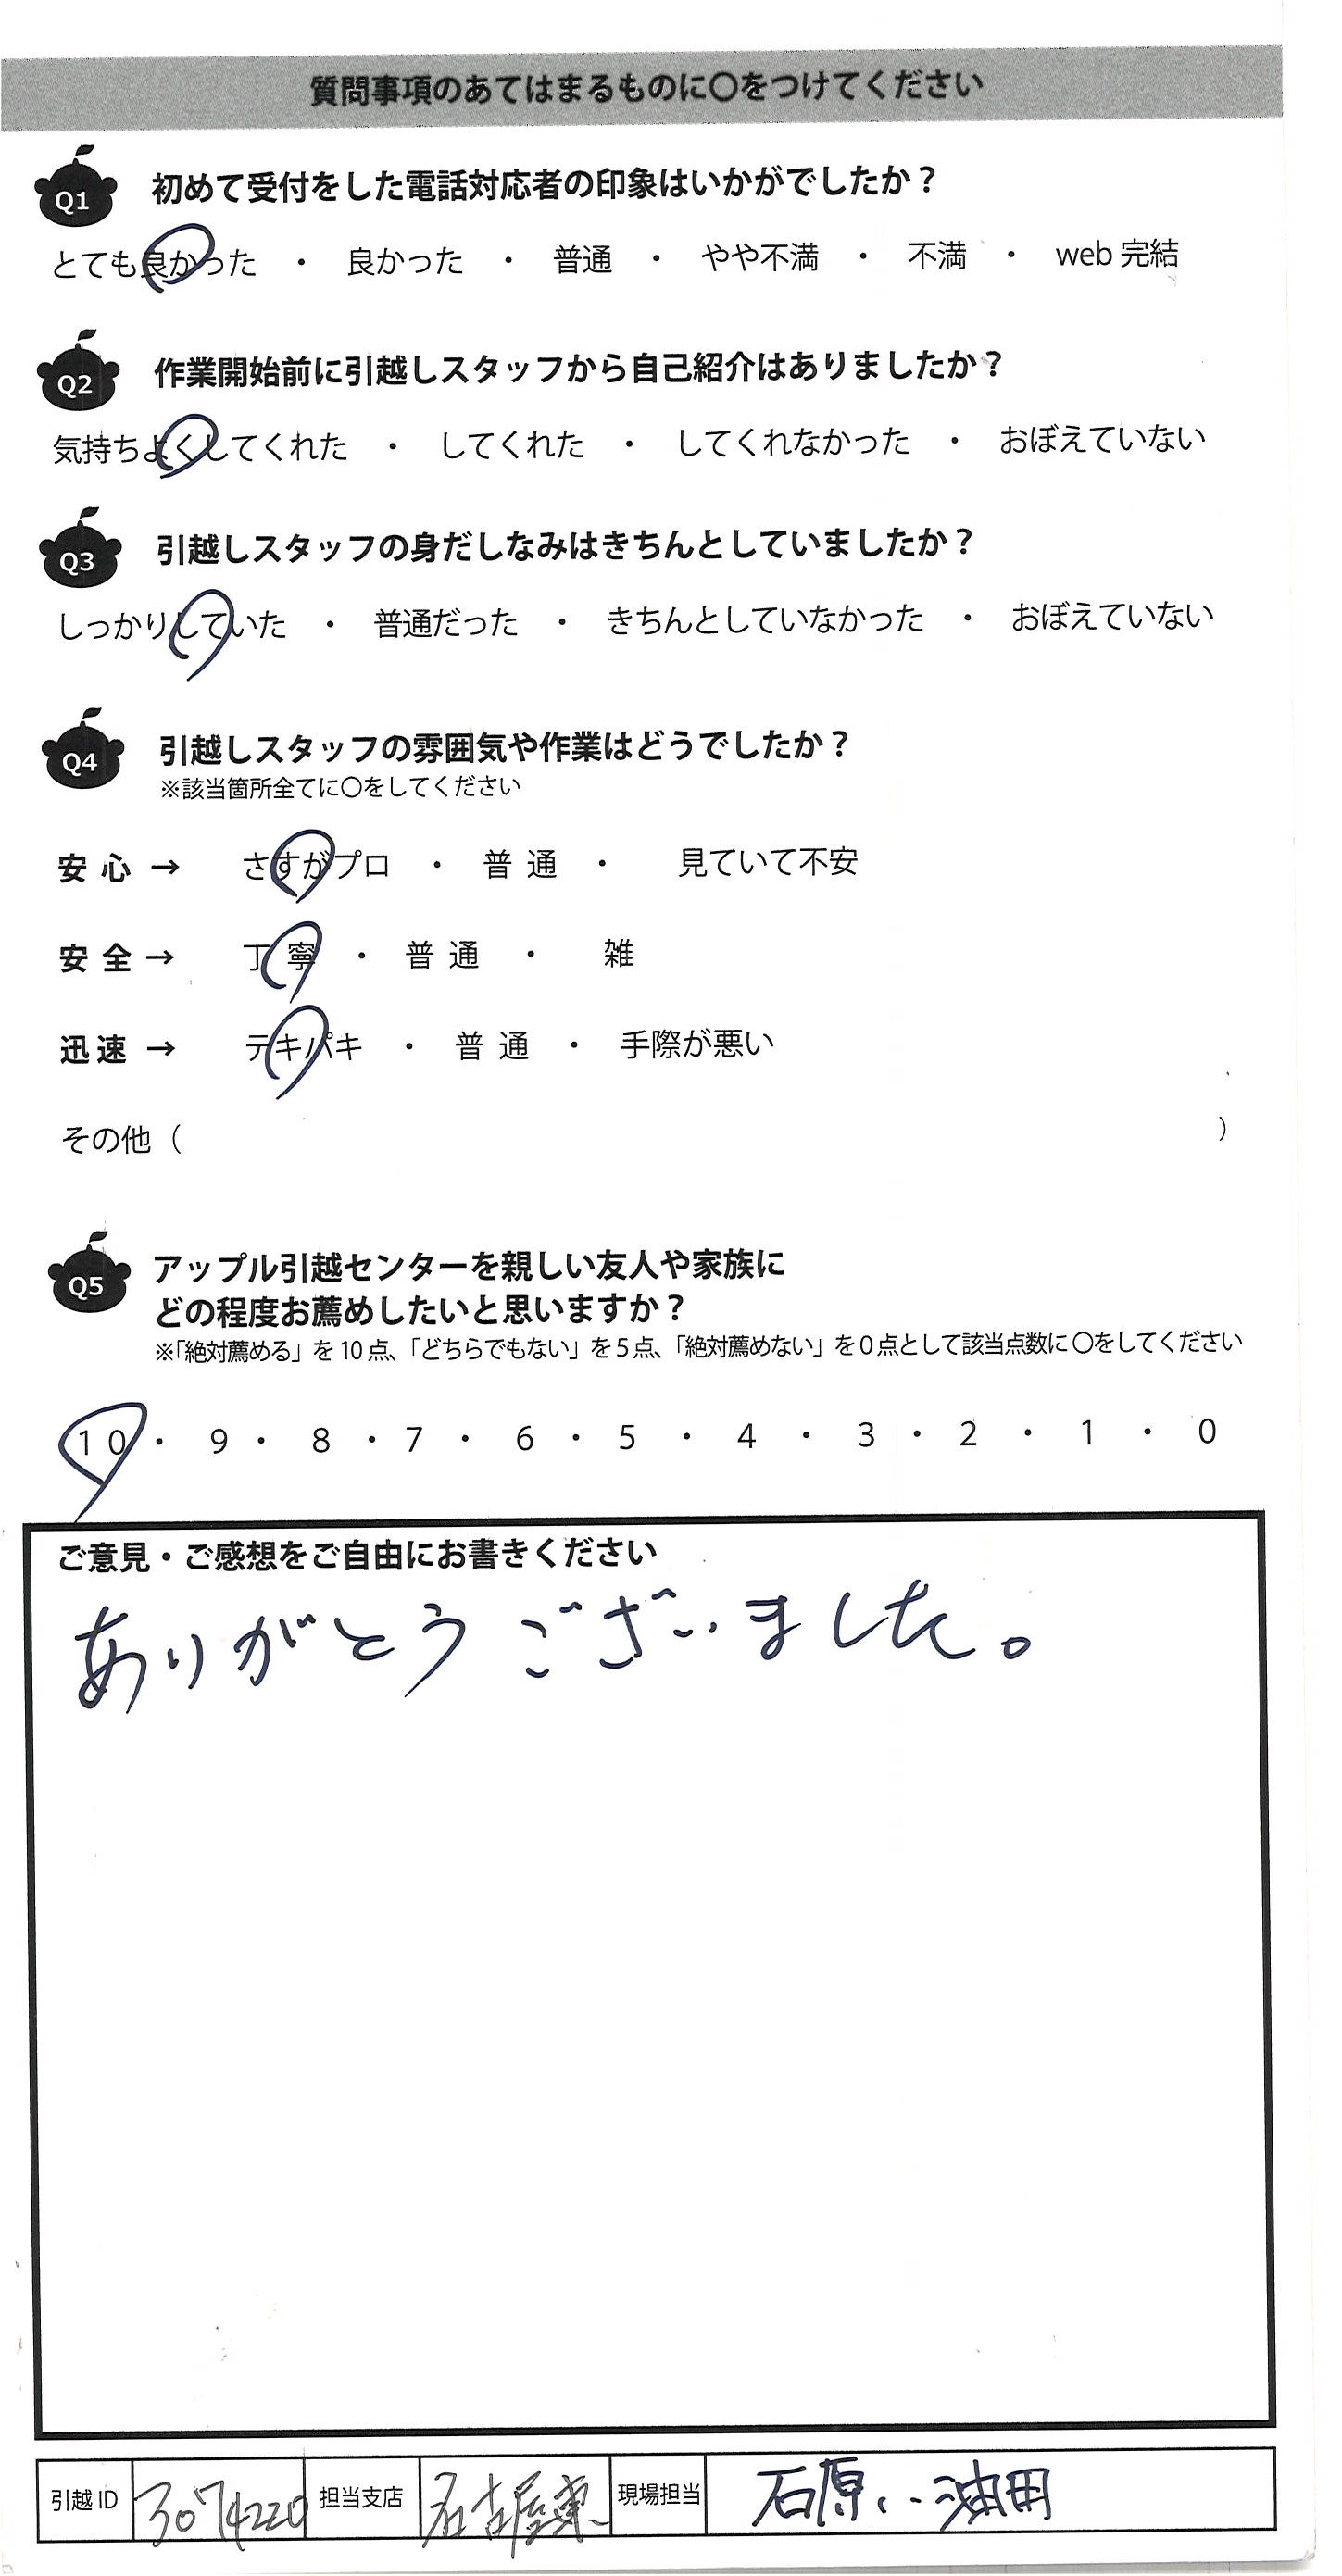 質問事項のあてはまるものに〇をつけてください
Q1 初めて受付をした電話対応者の印象はいかがでしたか？
とても良かった ・ 良かった ・ 普通 ・ やや不満 ・ 不満 ・ web 完結
Q2 作業開始前に引越しスタッフから自己紹介はありましたか？
気持ちよくしてくれた ・ してくれた ・ してくれなかった ・ おぼえていない
Q3 引越しスタッフの身だしなみはきちんとしていましたか？
しっかりしていた ・ 普通だった ・ きちんとしていなかった ・ おぼえていない
Q4 引越しスタッフの雰囲気や作業はどうでしたか？
※該当箇所全てに〇をしてください
安 心 → さすがプロ ・ 普 通 ・ 見ていて不安
安 全 → 丁 寧 ・ 普 通 ・ 雑
迅 速 → テキパキ ・ 普 通 ・ 手際が悪い
その他（ ）
Q5 アップル引越センターを親しい友人や家族に
どの程度お薦めしたいと思いますか？
※「絶対薦める」を 10 点、「どちらでもない」を 5 点、「絶対薦めない」を 0 点として該当点数に 〇をしてください
10 ・ 9 ・ 8 ・ 7 ・ 6 ・ 5 ・ 4 ・ 3 ・ 2 ・ 1 ・ 0
ご意見・ご感想をご自由にお書きください
ありがとうございました。
引越 ID 3074220 担当支店 名古屋東 現場担当 石原 油田